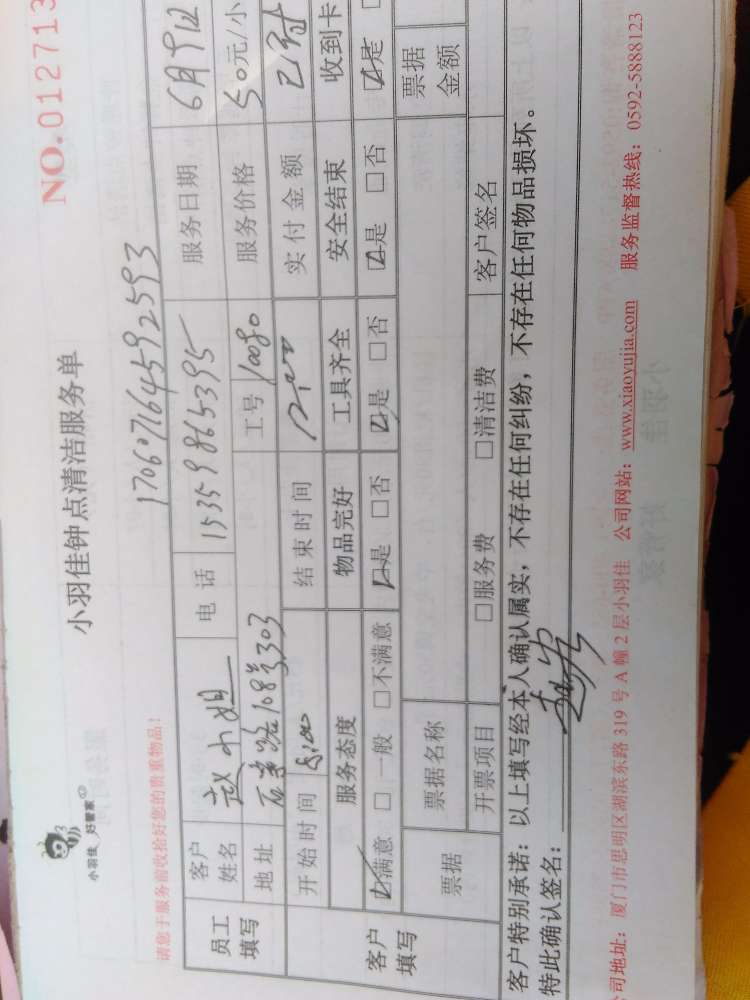 小羽佳 好管家
小羽佳钟点清洁服务单
NO.012713
请您于服务前收拾好您的贵重物品！
170607164592593
员工填写 客户姓名 赵小姐 电话 15359865395 服务日期 6月9日
地址 108号303 工号 10080 服务价格 50元/小
客户填写 开始时间 8:00 结束时间 12:00 实付金额 已付
服务态度 物品完好 工具齐全 安全结束 收到卡
☑满意 □一般 □不满意 ☑是 □否 ☑是 □否 ☑是 □否 ☑是
票据 票据名称 票据金额
开票项目 □服务费 □清洁费 客户签名
客户特别承诺：以上填写经本人确认属实，不存在任何纠纷，不存在任何物品损坏。
特此确认签名：
司地址：厦门市思明区湖滨东路 319 号 A 幢 2 层小羽佳 公司网站：www.xiaoyujia.com 服务监督热线：0592-5888123